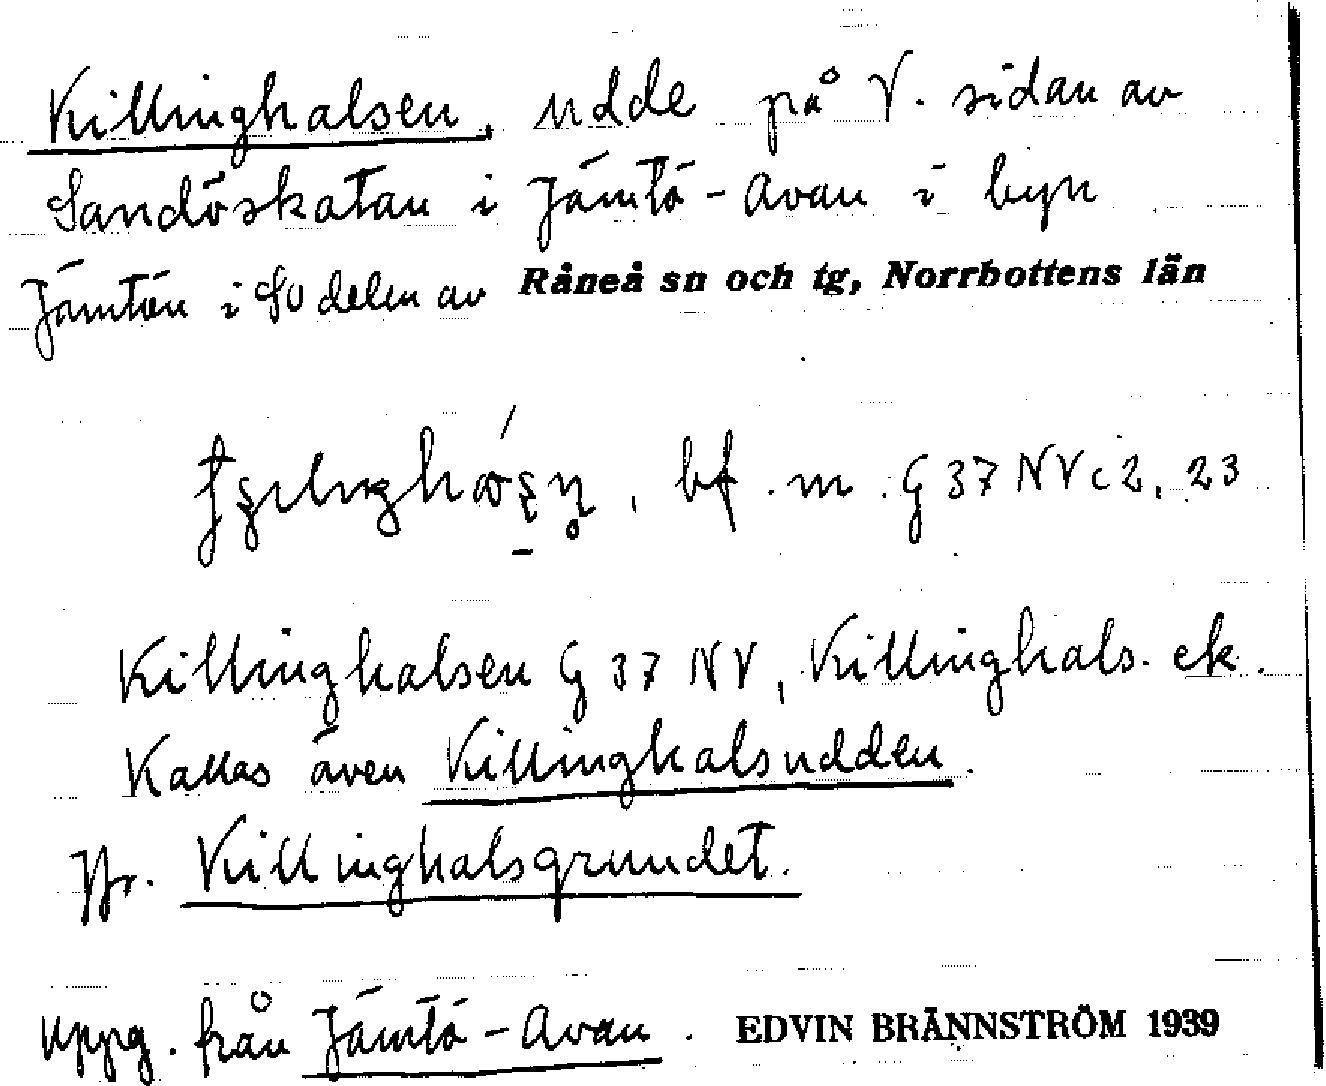 Killinghalsen, udde på V. sidan av
Sandöskatan i Jämtö-Avan i byn
Jämtön i SO delen av Råneå sn och tg, Norrbottens län
, bf. m. G 37 NV c 2, 23
Killinghalsen G 37 NV, Killinghals- ek.
Kallas även Killinghalsudden.
Jfr. Killinghalsgrundet.
Uppg. från Jämtö-Avan. EDVIN BRÄNNSTRÖM 1939